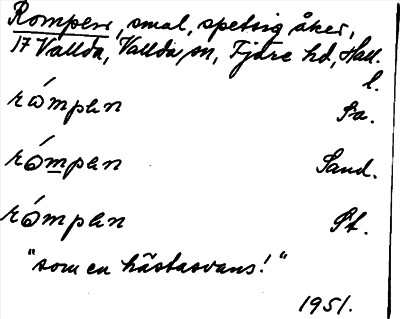 Rompen, smal, spetsig åker,
17 Vallda, Vallda sn, Fjäre hd, Hall.
l.
rómpen Pa.
rómpen Sand.
rómpen St.
"som en hästasvans!"
1951.